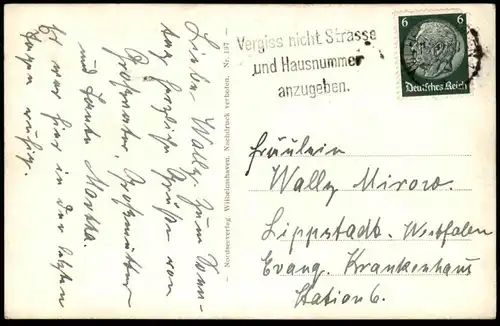 Liebe Wally. Zum Sonn-
tag herzliche Grüße von
Großvater, Großmutter
und Tante Martha.
Es war hier in der letzten
ruhig.
Nordseeverlag, Wilhelmshaven. Nachdruck verboten. Nr. 197
Vergiss nicht Strasse
und Hausnummer
anzugeben.
6 6
Deutsches Reich
Fräulein
Wally Mirow.
Lippstadt. Westfalen
Evang. Krankenhaus
Station 6.